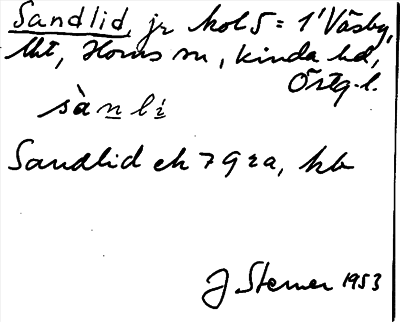 Sandlid, jr kol 5 = 1' Väsby,
Mt, Horns sn, Kinda hd,
Östg. l.
sà n l i
Sandlid ek 79 ea, kb
J Sterner 1953